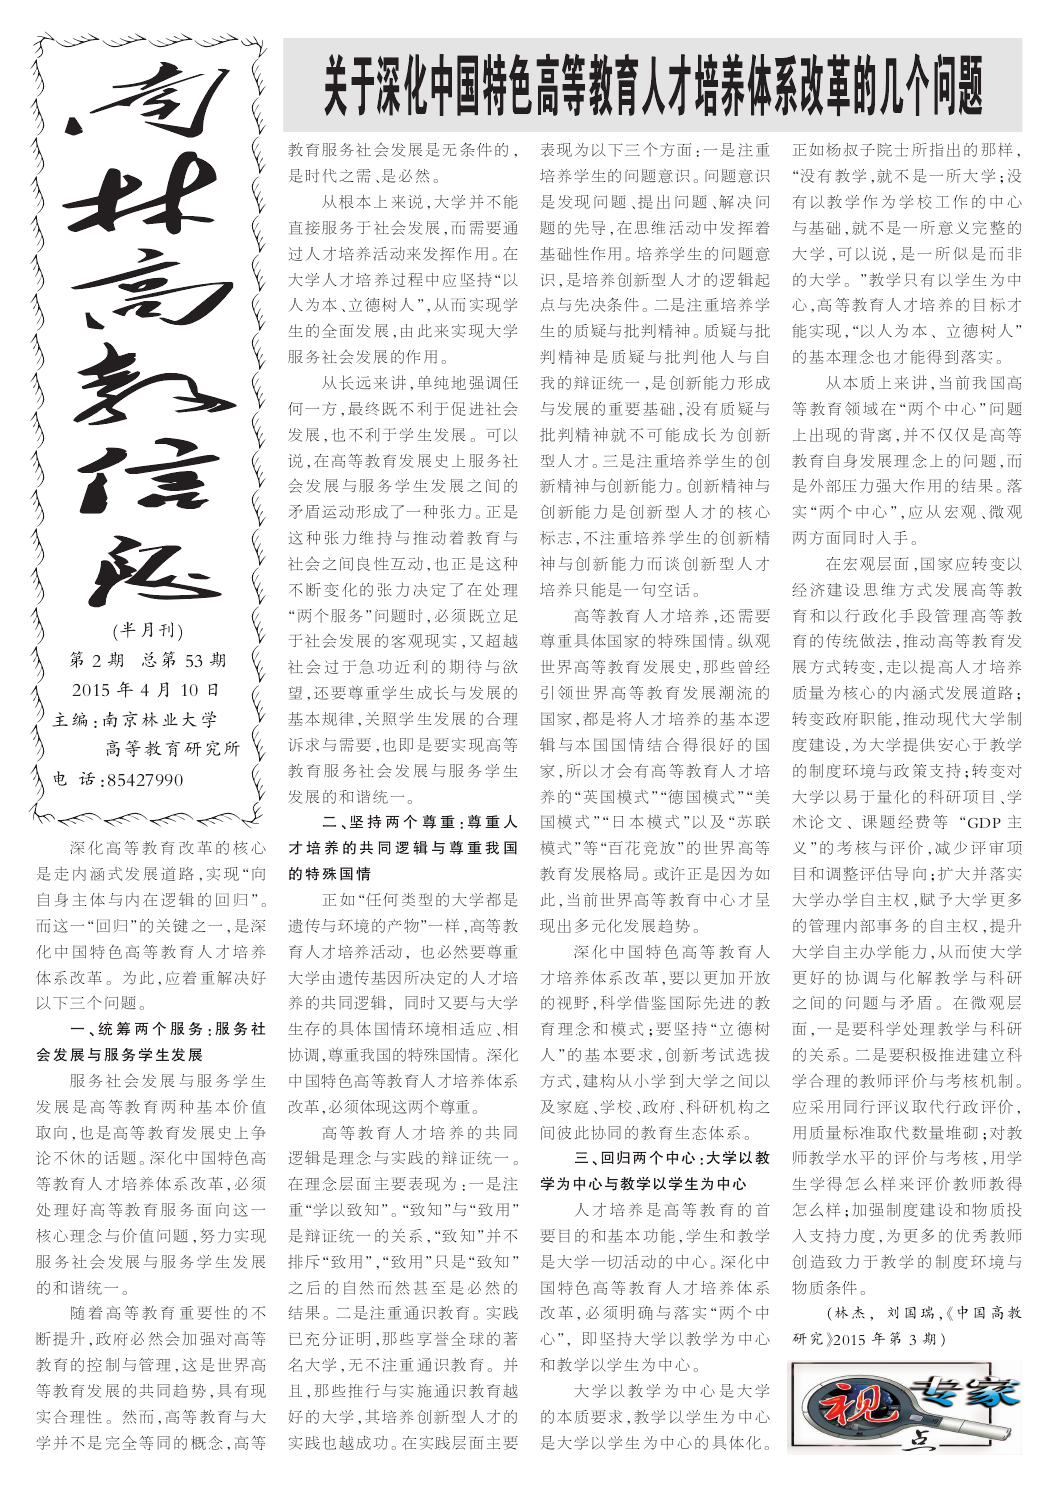 南林高教信息
(半月刊)
第 2 期 总第 53 期
2015 年 4 月 10 日
主编:南京林业大学
高等教育研究所
电 话:85427990
关于深化中国特色高等教育人才培养体系改革的几个问题
深化高等教育改革的核心
是走内涵式发展道路,实现“向
自身主体与内在逻辑的回归”。
而这一“回归”的关键之一,是深
化中国特色高等教育人才培养
体系改革。为此,应着重解决好
以下三个问题。
一、统筹两个服务:服务社
会发展与服务学生发展
服务社会发展与服务学生
发展是高等教育两种基本价值
取向,也是高等教育发展史上争
论不休的话题。深化中国特色高
等教育人才培养体系改革,必须
处理好高等教育服务面向这一
核心理念与价值问题,努力实现
服务社会发展与服务学生发展
的和谐统一。
随着高等教育重要性的不
断提升,政府必然会加强对高等
教育的控制与管理,这是世界高
等教育发展的共同趋势,具有现
实合理性。然而,高等教育与大
学并不是完全等同的概念,高等
教育服务社会发展是无条件的,
是时代之需、是必然。
从根本上来说,大学并不能
直接服务于社会发展,而需要通
过人才培养活动来发挥作用。在
大学人才培养过程中应坚持“以
人为本、立德树人”,从而实现学
生的全面发展,由此来实现大学
服务社会发展的作用。
从长远来讲,单纯地强调任
何一方,最终既不利于促进社会
发展,也不利于学生发展。可以
说,在高等教育发展史上服务社
会发展与服务学生发展之间的
矛盾运动形成了一种张力。正是
这种张力维持与推动着教育与
社会之间良性互动,也正是这种
不断变化的张力决定了在处理
“两个服务”问题时,必须既立足
于社会发展的客观现实,又超越
社会过于急功近利的期待与欲
望,还要尊重学生成长与发展的
基本规律,关照学生发展的合理
诉求与需要,也即是要实现高等
教育服务社会发展与服务学生
发展的和谐统一。
二、坚持两个尊重:尊重人
才培养的共同逻辑与尊重我国
的特殊国情
正如“任何类型的大学都是
遗传与环境的产物”一样,高等教
育人才培养活动,也必然要尊重
大学由遗传基因所决定的人才培
养的共同逻辑,同时又要与大学
生存的具体国情环境相适应、相
协调,尊重我国的特殊国情。深化
中国特色高等教育人才培养体系
改革,必须体现这两个尊重。
高等教育人才培养的共同
逻辑是理念与实践的辩证统一。
在理念层面主要表现为:一是注
重“学以致知”。“致知”与“致用”
是辩证统一的关系,“致知”并不
排斥“致用”,“致用”只是“致知”
之后的自然而然甚至是必然的
结果。二是注重通识教育。实践
已充分证明,那些享誉全球的著
名大学,无不注重通识教育。并
且,那些推行与实施通识教育越
好的大学,其培养创新型人才的
实践也越成功。在实践层面主要
表现为以下三个方面:一是注重
培养学生的问题意识。问题意识
是发现问题、提出问题、解决问
题的先导,在思维活动中发挥着
基础性作用。培养学生的问题意
识,是培养创新型人才的逻辑起
点与先决条件。二是注重培养学
生的质疑与批判精神。质疑与批
判精神是质疑与批判他人与自
我的辩证统一,是创新能力形成
与发展的重要基础,没有质疑与
批判精神就不可能成长为创新
型人才。三是注重培养学生的创
新精神与创新能力。创新精神与
创新能力是创新型人才的核心
标志,不注重培养学生的创新精
神与创新能力而谈创新型人才
培养只能是一句空话。
高等教育人才培养,还需要
尊重具体国家的特殊国情。纵观
世界高等教育发展史,那些曾经
引领世界高等教育发展潮流的
国家,都是将人才培养的基本逻
辑与本国国情结合得很好的国
家,所以才会有高等教育人才培
养的“英国模式”“德国模式”“美
国模式”“日本模式”以及“苏联
模式”等“百花竞放”的世界高等
教育发展格局。或许正是因为如
此,当前世界高等教育中心才呈
现出多元化发展趋势。
深化中国特色高等教育人
才培养体系改革,要以更加开放
的视野,科学借鉴国际先进的教
育理念和模式;要坚持“立德树
人”的基本要求,创新考试选拔
方式,建构从小学到大学之间以
及家庭、学校、政府、科研机构之
间彼此协同的教育生态体系。
三、回归两个中心:大学以教
学为中心与教学以学生为中心
人才培养是高等教育的首
要目的和基本功能,学生和教学
是大学一切活动的中心。深化中
国特色高等教育人才培养体系
改革,必须明确与落实“两个中
心”,即坚持大学以教学为中心
和教学以学生为中心。
大学以教学为中心是大学
的本质要求,教学以学生为中心
是大学以学生为中心的具体化。
正如杨叔子院士所指出的那样,
“没有教学,就不是一所大学;没
有以教学作为学校工作的中心
与基础,就不是一所意义完整的
大学,可以说,是一所似是而非
的大学。”教学只有以学生为中
心,高等教育人才培养的目标才
能实现,“以人为本、立德树人”
的基本理念也才能得到落实。
从本质上来讲,当前我国高
等教育领域在“两个中心”问题
上出现的背离,并不仅仅是高等
教育自身发展理念上的问题,而
是外部压力强大作用的结果。落
实“两个中心”,应从宏观、微观
两方面同时入手。
在宏观层面,国家应转变以
经济建设思维方式发展高等教
育和以行政化手段管理高等教
育的传统做法,推动高等教育发
展方式转变,走以提高人才培养
质量为核心的内涵式发展道路;
转变政府职能,推动现代大学制
度建设,为大学提供安心于教学
的制度环境与政策支持;转变对
大学以易于量化的科研项目、学
术论文、课题经费等“GDP 主
义”的考核与评价,减少评审项
目和调整评估导向;扩大并落实
大学办学自主权,赋予大学更多
的管理内部事务的自主权,提升
大学自主办学能力,从而使大学
更好的协调与化解教学与科研
之间的问题与矛盾。在微观层
面,一是要科学处理教学与科研
的关系。二是要积极推进建立科
学合理的教师评价与考核机制。
应采用同行评议取代行政评价,
用质量标准取代数量堆砌;对教
师教学水平的评价与考核,用学
生学得怎么样来评价教师教得
怎么样;加强制度建设和物质投
入支持力度,为更多的优秀教师
创造致力于教学的制度环境与
物质条件。
(林杰,刘国瑞,《中国高教
研究》2015 年第 3 期)
专家
视
点